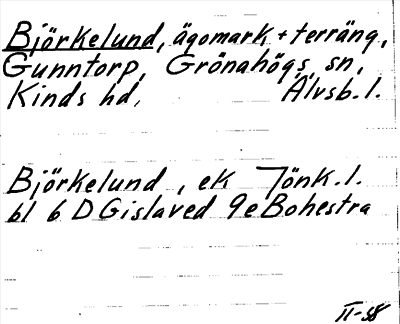 Björkelund, ägomark + terräng,
Gunntorp, Grönahögs sn,
Kinds hd, Älvsb. l.
Björkelund, ek Jönk. l.
bl 6 D Gislaved 9e Bohestra